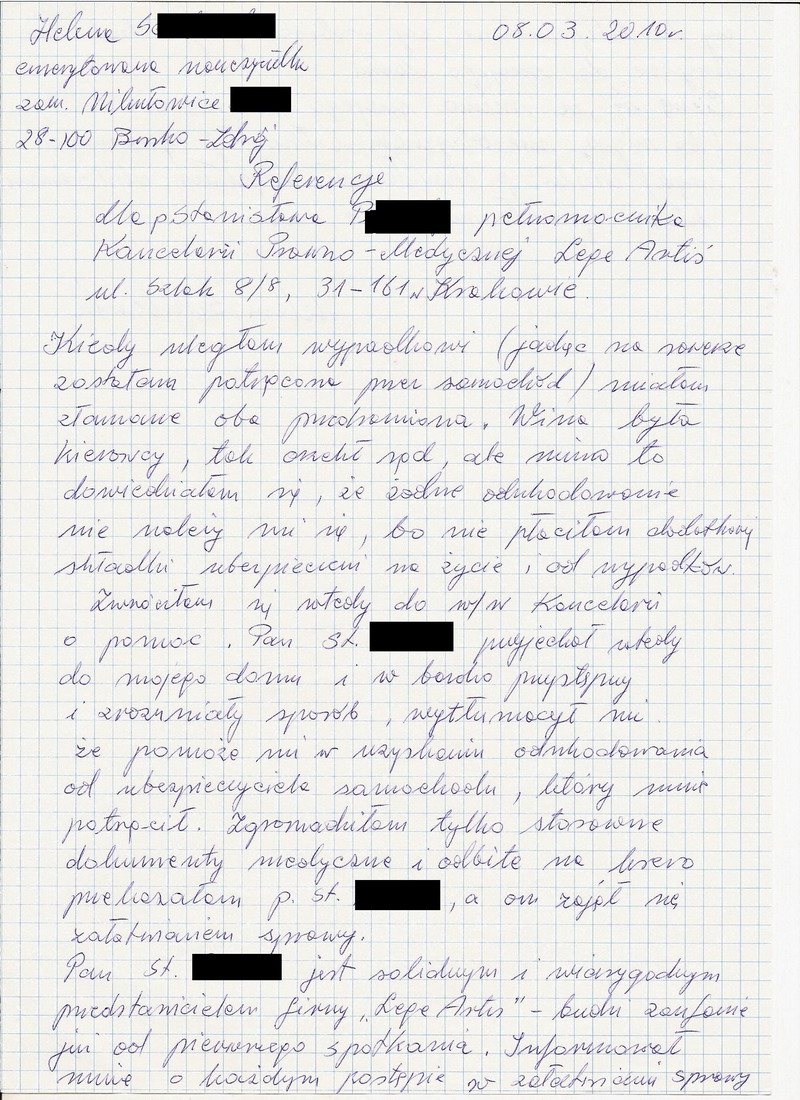 Helena S
08.03.2010r.
emerytowana nauczycielka
zam. Mikułowice
28-100 Busko-Zdrój
Referencje
dla p Stanisława B pełnomocnika
Kancelarii Prawno-Medycznej Lege Artis
ul. Szlak 8/8, 31-161 w Krakowie.
Kiedy uległam wypadkowi (jadąc na rowerze
zostałam potrącona przez samochód) miałam
złamane oba przedramiona. Wina była
kierowcy, tak orzekł sąd, ale mimo to
dowiedziałam się, że żadne odszkodowanie
nie należy mi się, bo nie płaciłam dodatkowej
składki ubezpieczeni na życie i od wypadków.
Zwróciłam się wtedy do w/w Kancelarii
o pomoc. Pan St. przyjechał wtedy
do mojego domu i w bardzo przystępny
i zrozumiały sposób, wytłumaczył mi
że pomoże mi w uzyskaniu odszkodowania
od ubezpieczyciela samochodu, który mnie
potrącił. Zgromadziłam tylko stosowne
dokumenty medyczne i odbite na ksero
przekazałam p. St. , a on zajął się
załatwianiem sprawy.
Pan St. jest solidnym i wiarygodnym
przedstawicielem firmy „Lege Artis" - budzi zaufanie
już od pierwszego spotkania. Informował
mnie o każdym postępie w załatwianiu sprawy